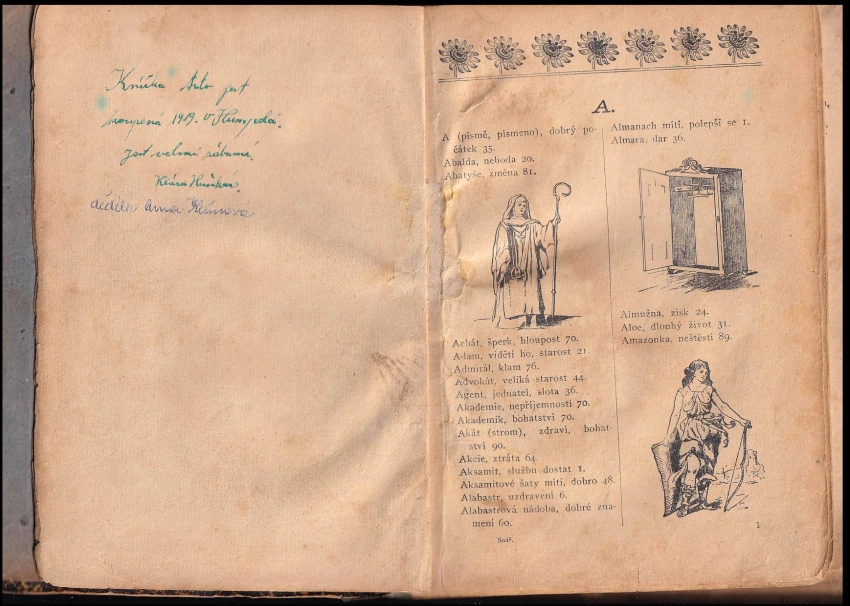 Knížka tato jest
koupená 1919. v Humpolci.
jest velmi zábavná.
Klára
dědila Anna
A.
A (písmě, písmeno), dobrý po-
čátek 35.
Abalda, nehoda 20.
Abatyše, změna 81.
Achát, šperk, hloupost 70.
Adam, viděti ho, starost 21.
Admirál, klam 76.
Advokát, veliká starost 44.
Agent, jednatel, slota 36.
Akademie, nepříjemnosti 70.
Akademik, bohatství 70.
Akát (strom), zdraví, bohat-
ství 90.
Akcie, ztráta 64.
Aksamit, službu dostat 1.
Aksamitové šaty míti, dobro 48.
Alabastr, uzdravení 6.
Alabastrová nádoba, dobré zna-
mení 60.
Snář.
Almanach míti, polepší se 1.
Almara, dar 36.
Almužna, zisk 24.
Aloe, dlouhý život 31.
Amazonka, neštěstí 89.
1